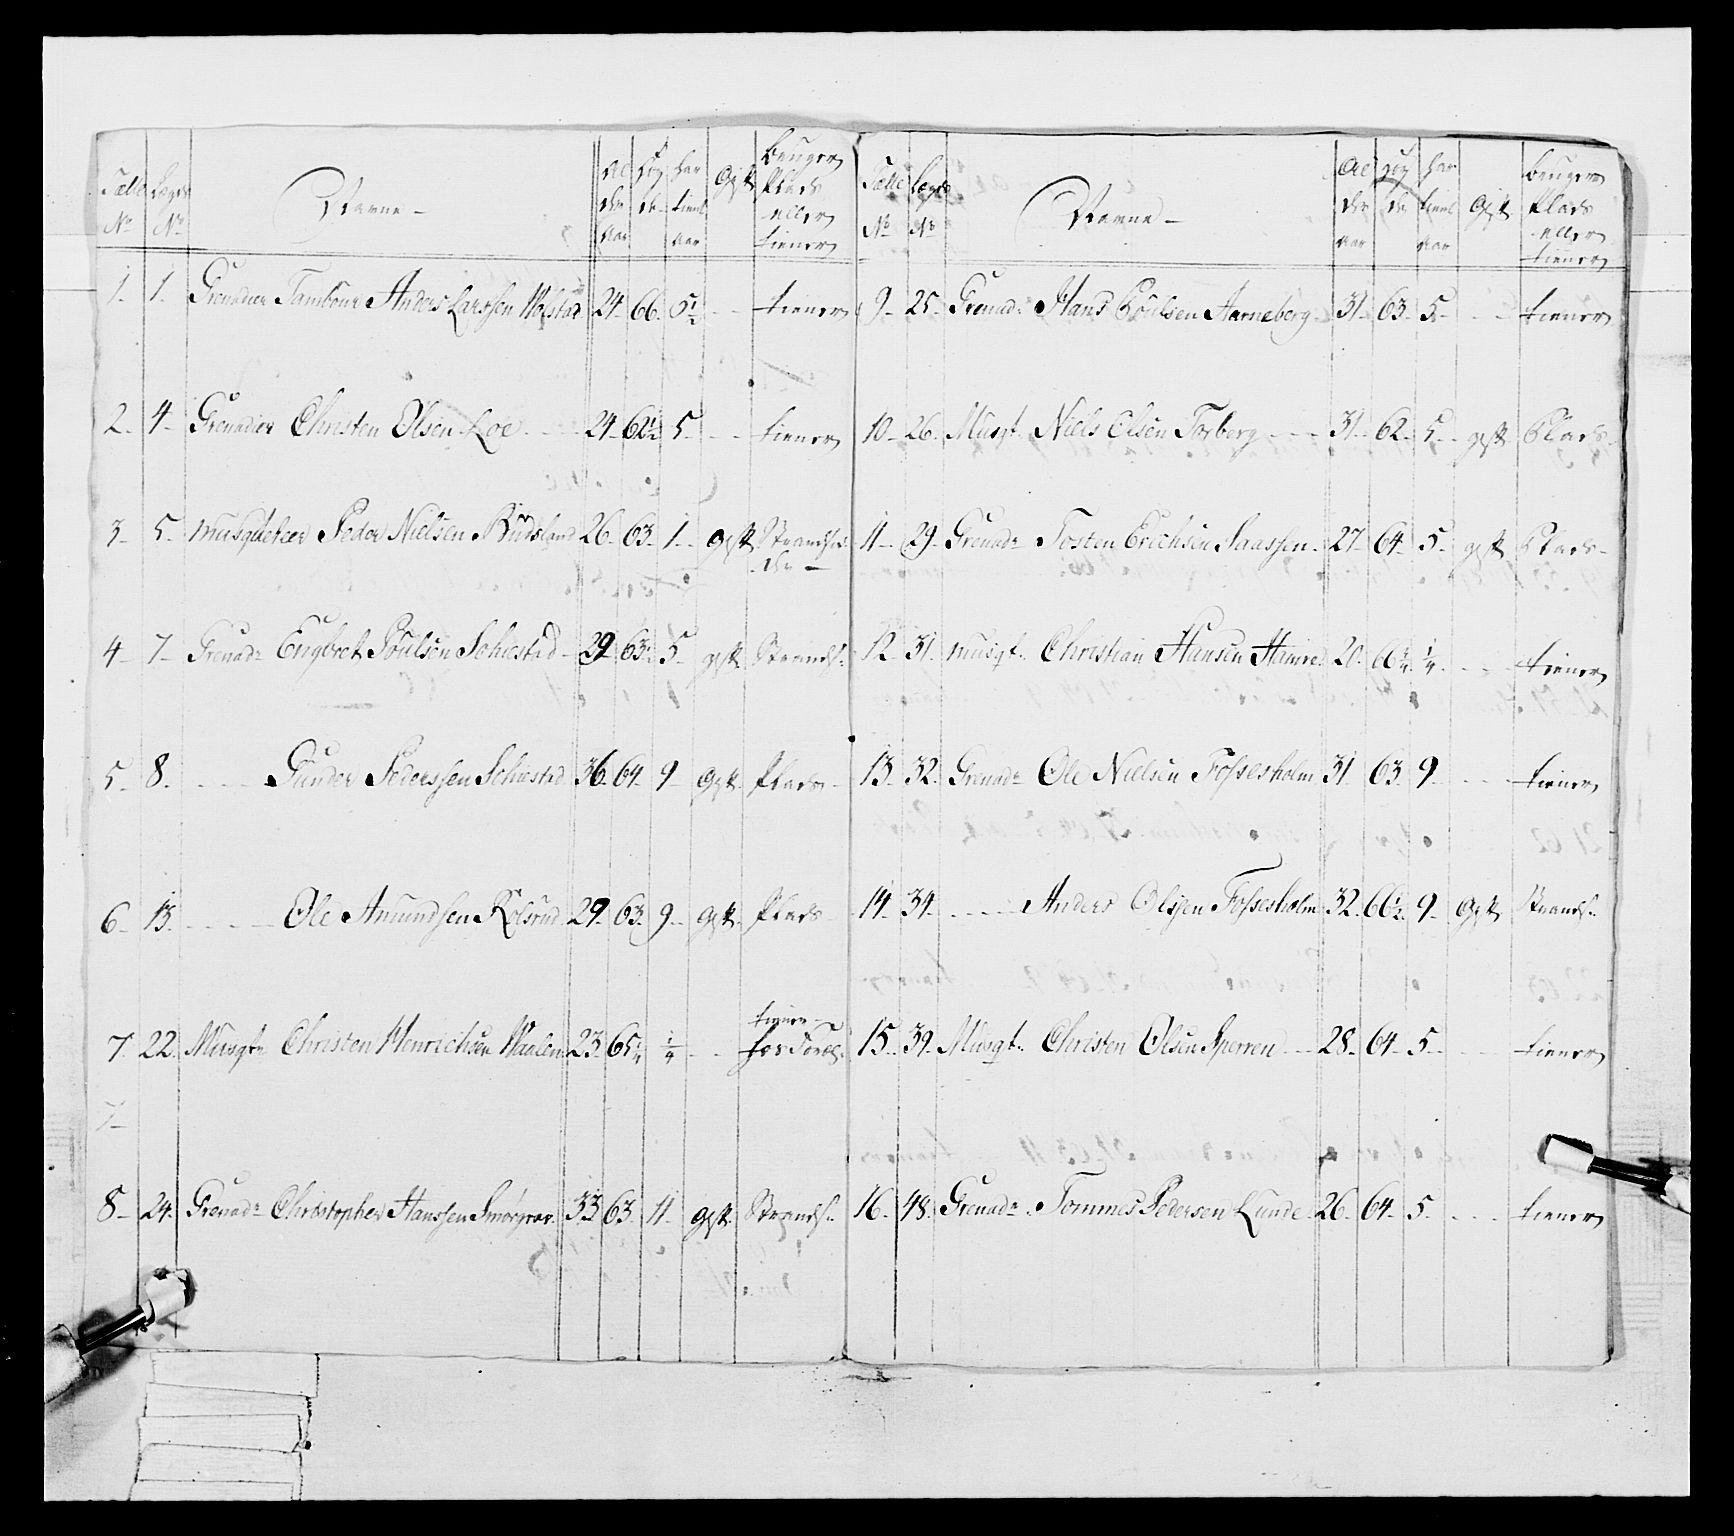 Tælle Legds Navne Al Høy har Gift Beuger
No No der de tient Plads
aar aar eller
tiener
1. 1. Grenadeer Tambour Anders Larssen Wolstad 24 66 5½ - - tiener
2. 4. Grenadier Christen Olsen Loe 24 62½ 5 - - tiener
3. 5. Musqueteer Peder Nielsen Rudsland 26 63 1 gift Strandsi-
der
4. 7. Grenadr Engbret Poulsen Schiestad 29 63 5 gift Strands:
5. 8. - - - Gunder Pederssen Schiestad 36 64 9 Gift Plads
6. 13. - - - Ole Amundsen Kolsrud 29 63 9 gift Plads
tiener
7. 22. Musqt: Christen Henrichsen Waalen 23 65¼ ¼ - - hos
7
8. 24. Grenadr Christopher Hanssen Smørgrav 33 63 11 gift Strands:
Tælle Legds Navne Al Høy har Gift Beuger
No No der de tient Plads
aar aar eller
tiener
9. 25. Grenadr Hans Poulsen Aarneberg 31 63 5 - - tiener
10. 26. Musqt. Niels Olsen Torberg 31 62 5 gift Plads
11. 29. Grenadr Tosten Erichsen Saassen 27 64 5 gift Plads
12. 31. Musqt. Christian Hansen Hamre 20 66¼ ¼ - - tiener
13. 32. Grenadr Ole Nielsen Fossesholm 31 63 9 - - tiener
14. 34. - - - Anders Olssen Fossesholm 32 66½ 9 Gift Strands:
15. 39. Musqt. Christen Olsen Sperren 28 64 5 - - tiener
16. 48. Grenadr Tommes Pedersen Lunde 26 64 5 - - tiener